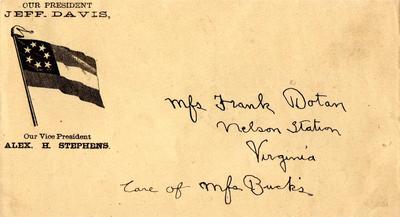 OUR PRESIDENT
JEFF. DAVIS,
Our Vice President
ALEX. H. STEPHENS.
Mrs Frank Dotan
Nelson Station
Virginia
Care of Mrs Bucks